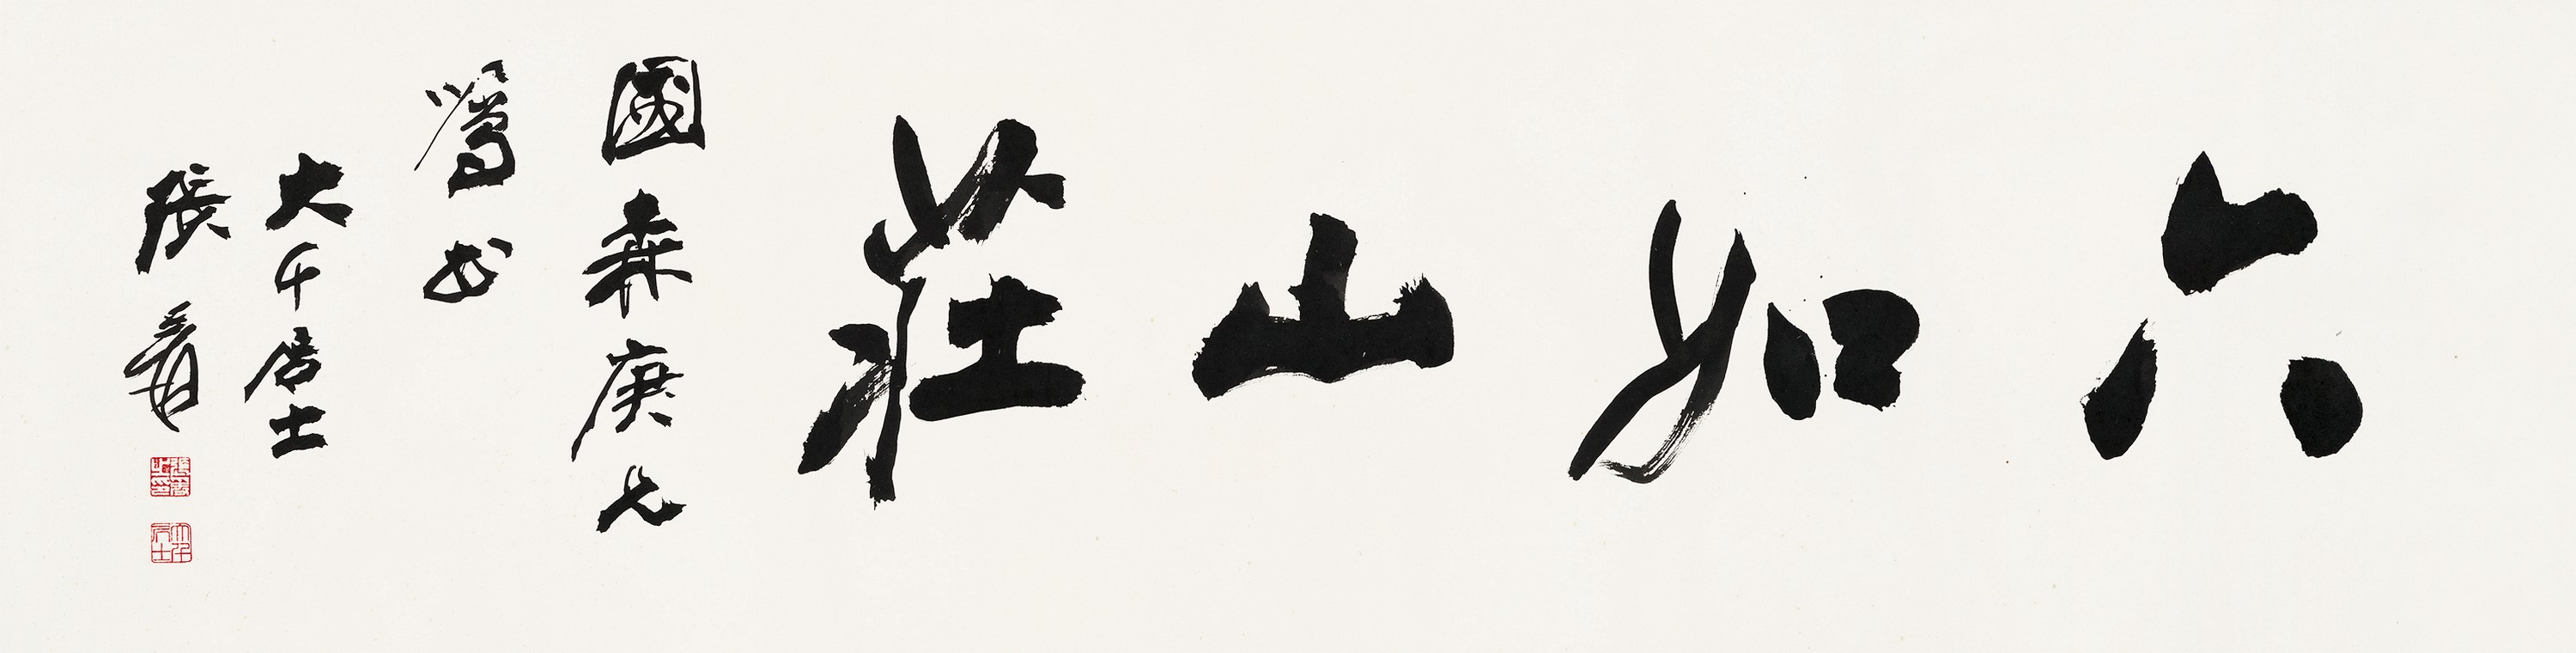 六如山莊
國森庚兄
囑書
大千居士
張爰
張爰之印
大千居士